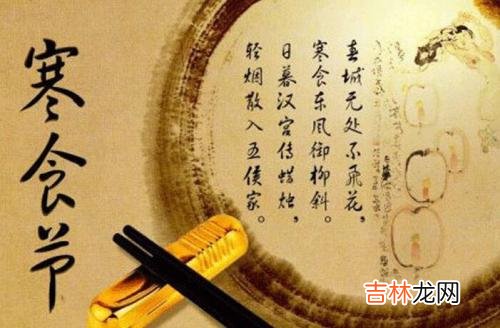 寒食节
春城无处不飞花，
寒食东风御柳斜。
日暮汉宫传蜡烛，
轻烟散入五侯家。
吉林龙网